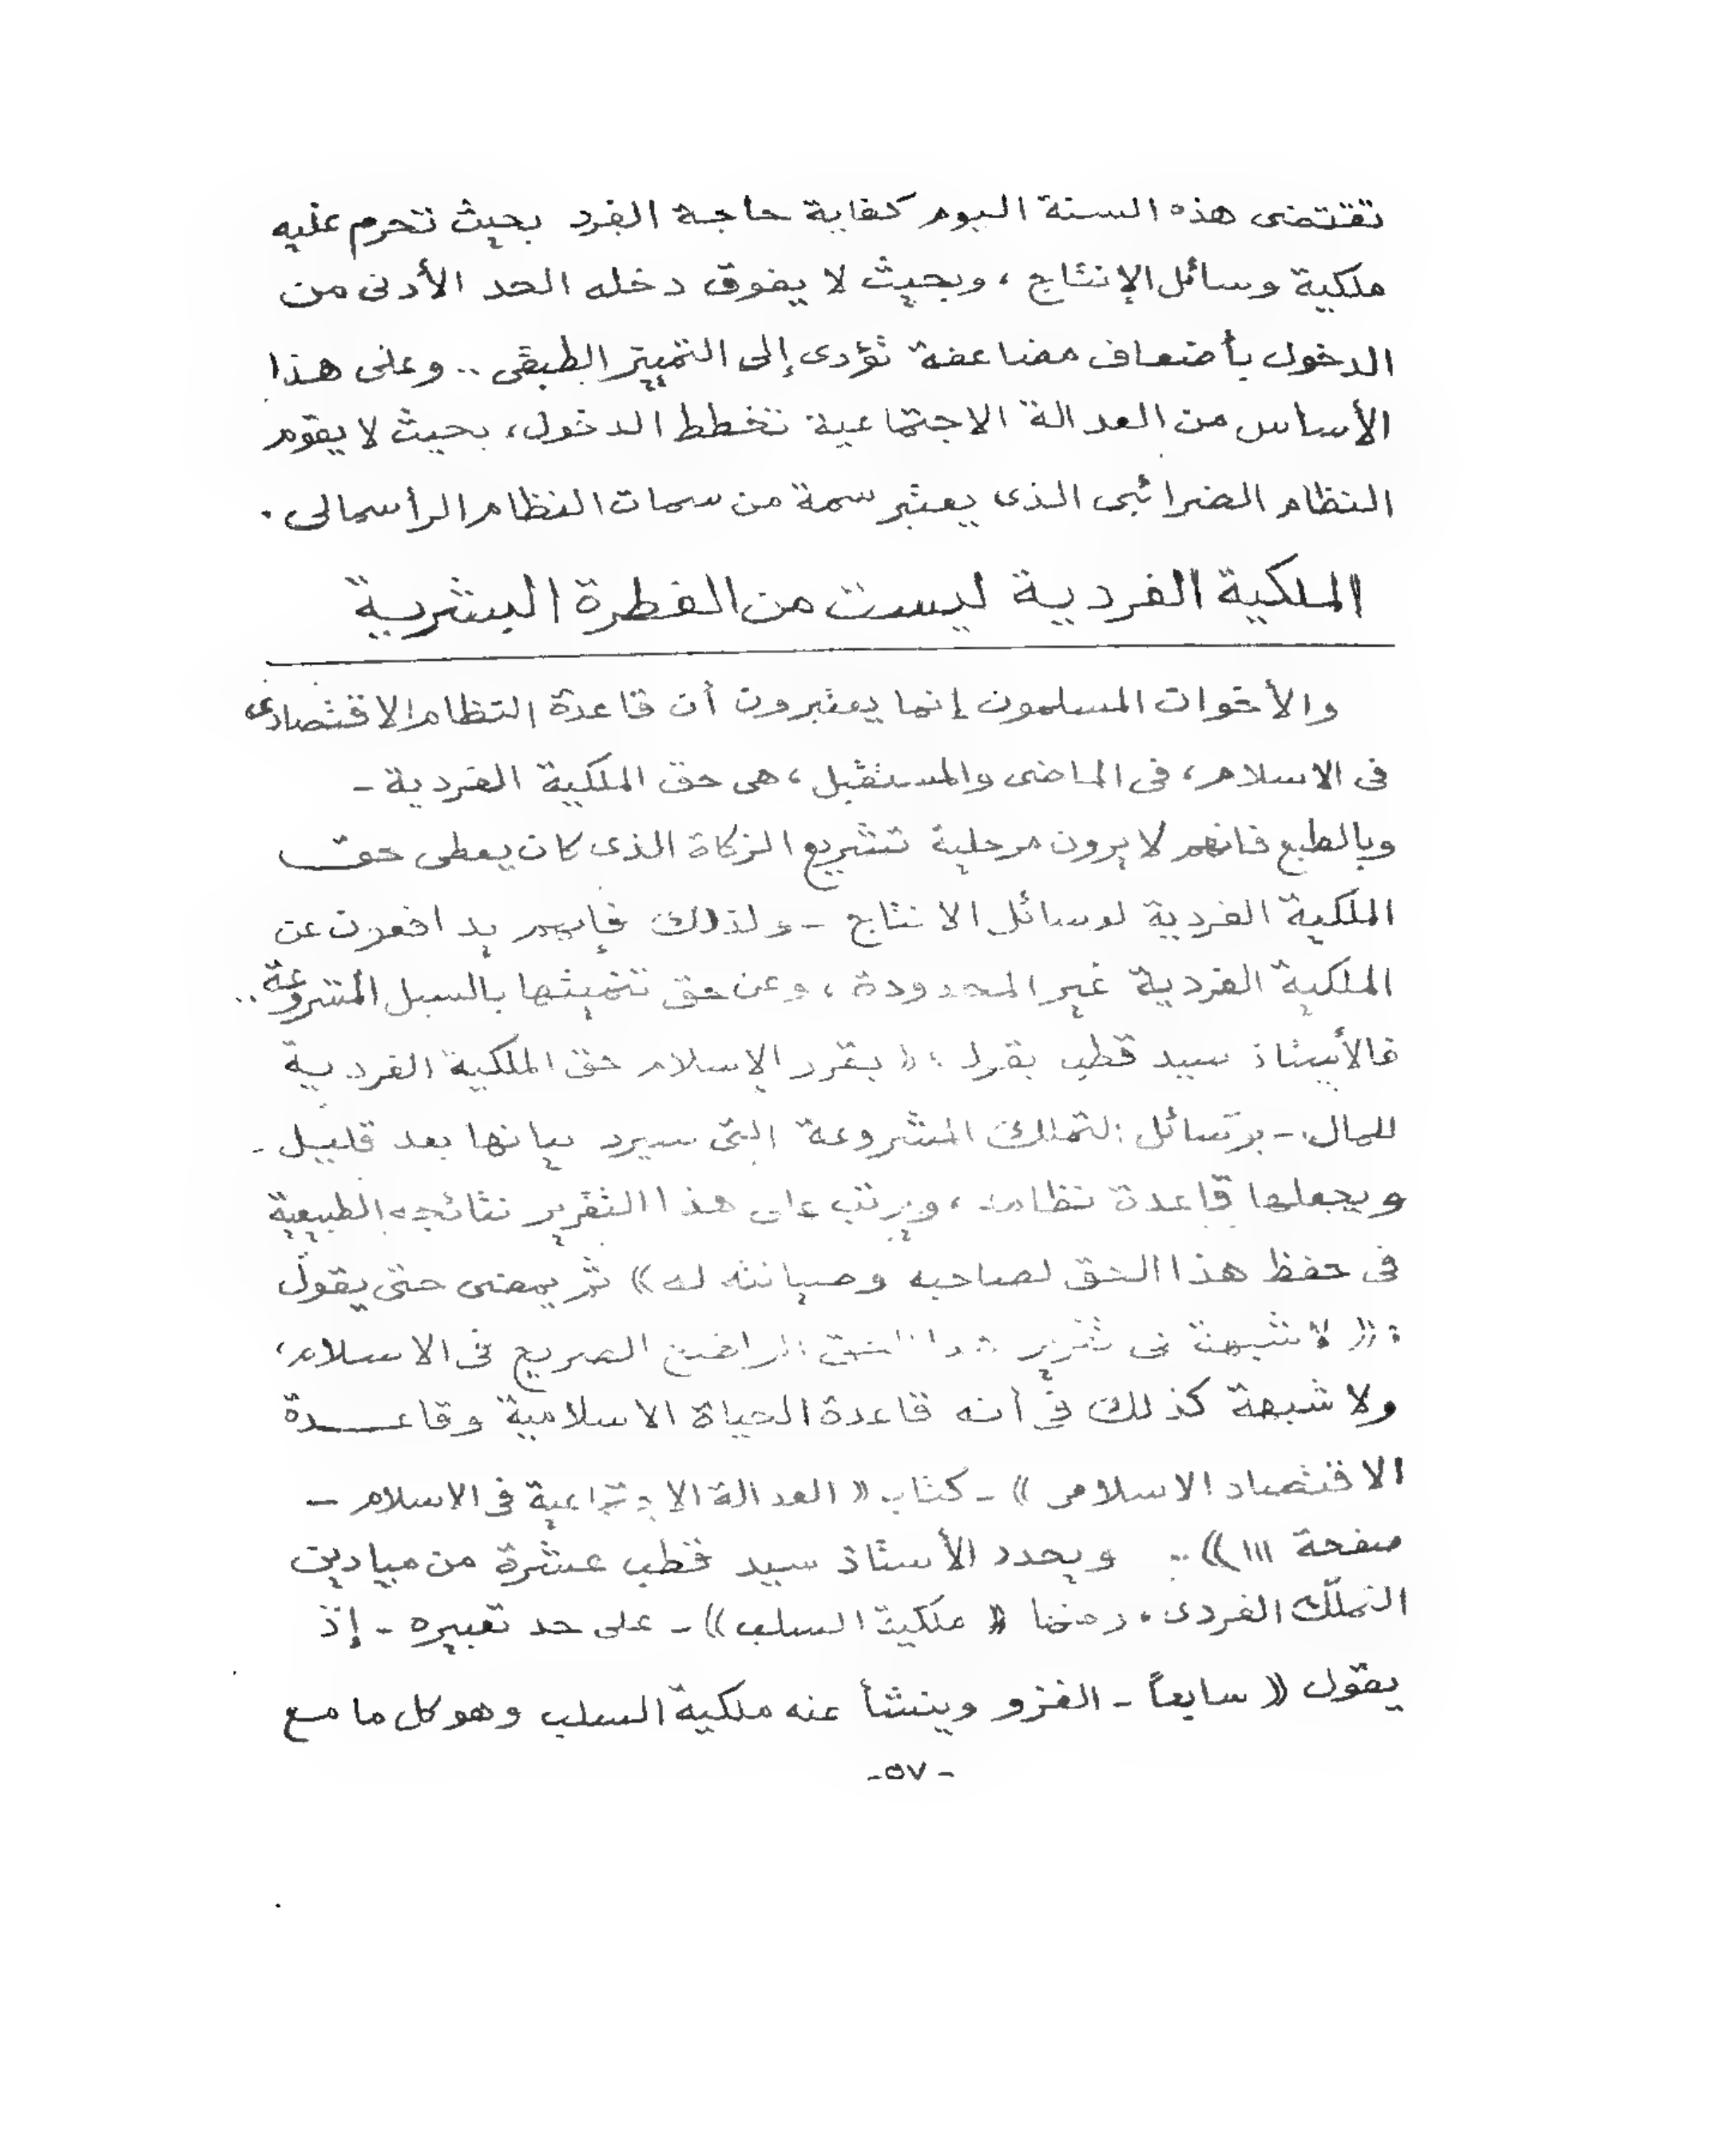 تقتضى هذه السنة اليوم كفاية حاجة الفرد بحيث تحرم عليه
ملكية وسائل الإنتاج ، وبحيث لا يفوق دخله الحد الأدنى من
الدخول بأضعاف مضاعفة تؤدى إلى التمييز الطبقى .. وعلى هذا
الأساس من العدالة الاجتماعية تخطط الدخول ، بحيث لا يقوم
النظام الضرائبى الذى يعتبر سمة من سمات النظام الرأسمالى .
الملكية الفردية ليست من الفطرة البشرية
والأخوات المسلمون إنما يعتبرون أن قاعدة النظام الاقتصادى
فى الاسلام ، فى الماضى والمستقبل ، هى حق الملكية الفردية -
وبالطبع فانهم لا يرون مرحلية تشريع الزكاة الذى كان يعطى حق
الملكية الفردية لوسائل الانتاج - ولذلك فإنهم يدافعون عن
الملكية الفردية غير المحدودة ، وعن حق تنميتها بالسبل المشروعة ..
فالأستاذ سيد قطب يقول : (( يقرر الإسلام حق الملكية الفردية
للمال - بوسائل التملك المشروعة التى سيرد بيانها بعد قليل -
ويجعلها قاعدة نظامه ، ويرتب على هذا التقرير نتائجه الطبيعية
فى حفظ هذا الحق لصاحبه وصيانته له )) ثم يمضى حتى يقول
: (( لا شبهة فى تقرير هذا الحق الواضح الصريح فى الاسلام ،
ولا شبهة كذلك فى أنه قاعدة الحياة الاسلامية وقاعدة
الاقتصاد الاسلامى )) - كتاب (( العدالة الاجتماعية فى الاسلام -
صفحة ١١١ )) .. ويحدد الأستاذ سيد قطب عشرة من ميادين
التملّك الفردى ، ومنها (( ملكية السلب )) - على حد تعبيره - إذ
يقول (( سابعاً - الغزو وينشأ عنه ملكية السلب وهو كل ما مع
- ٥٧ -